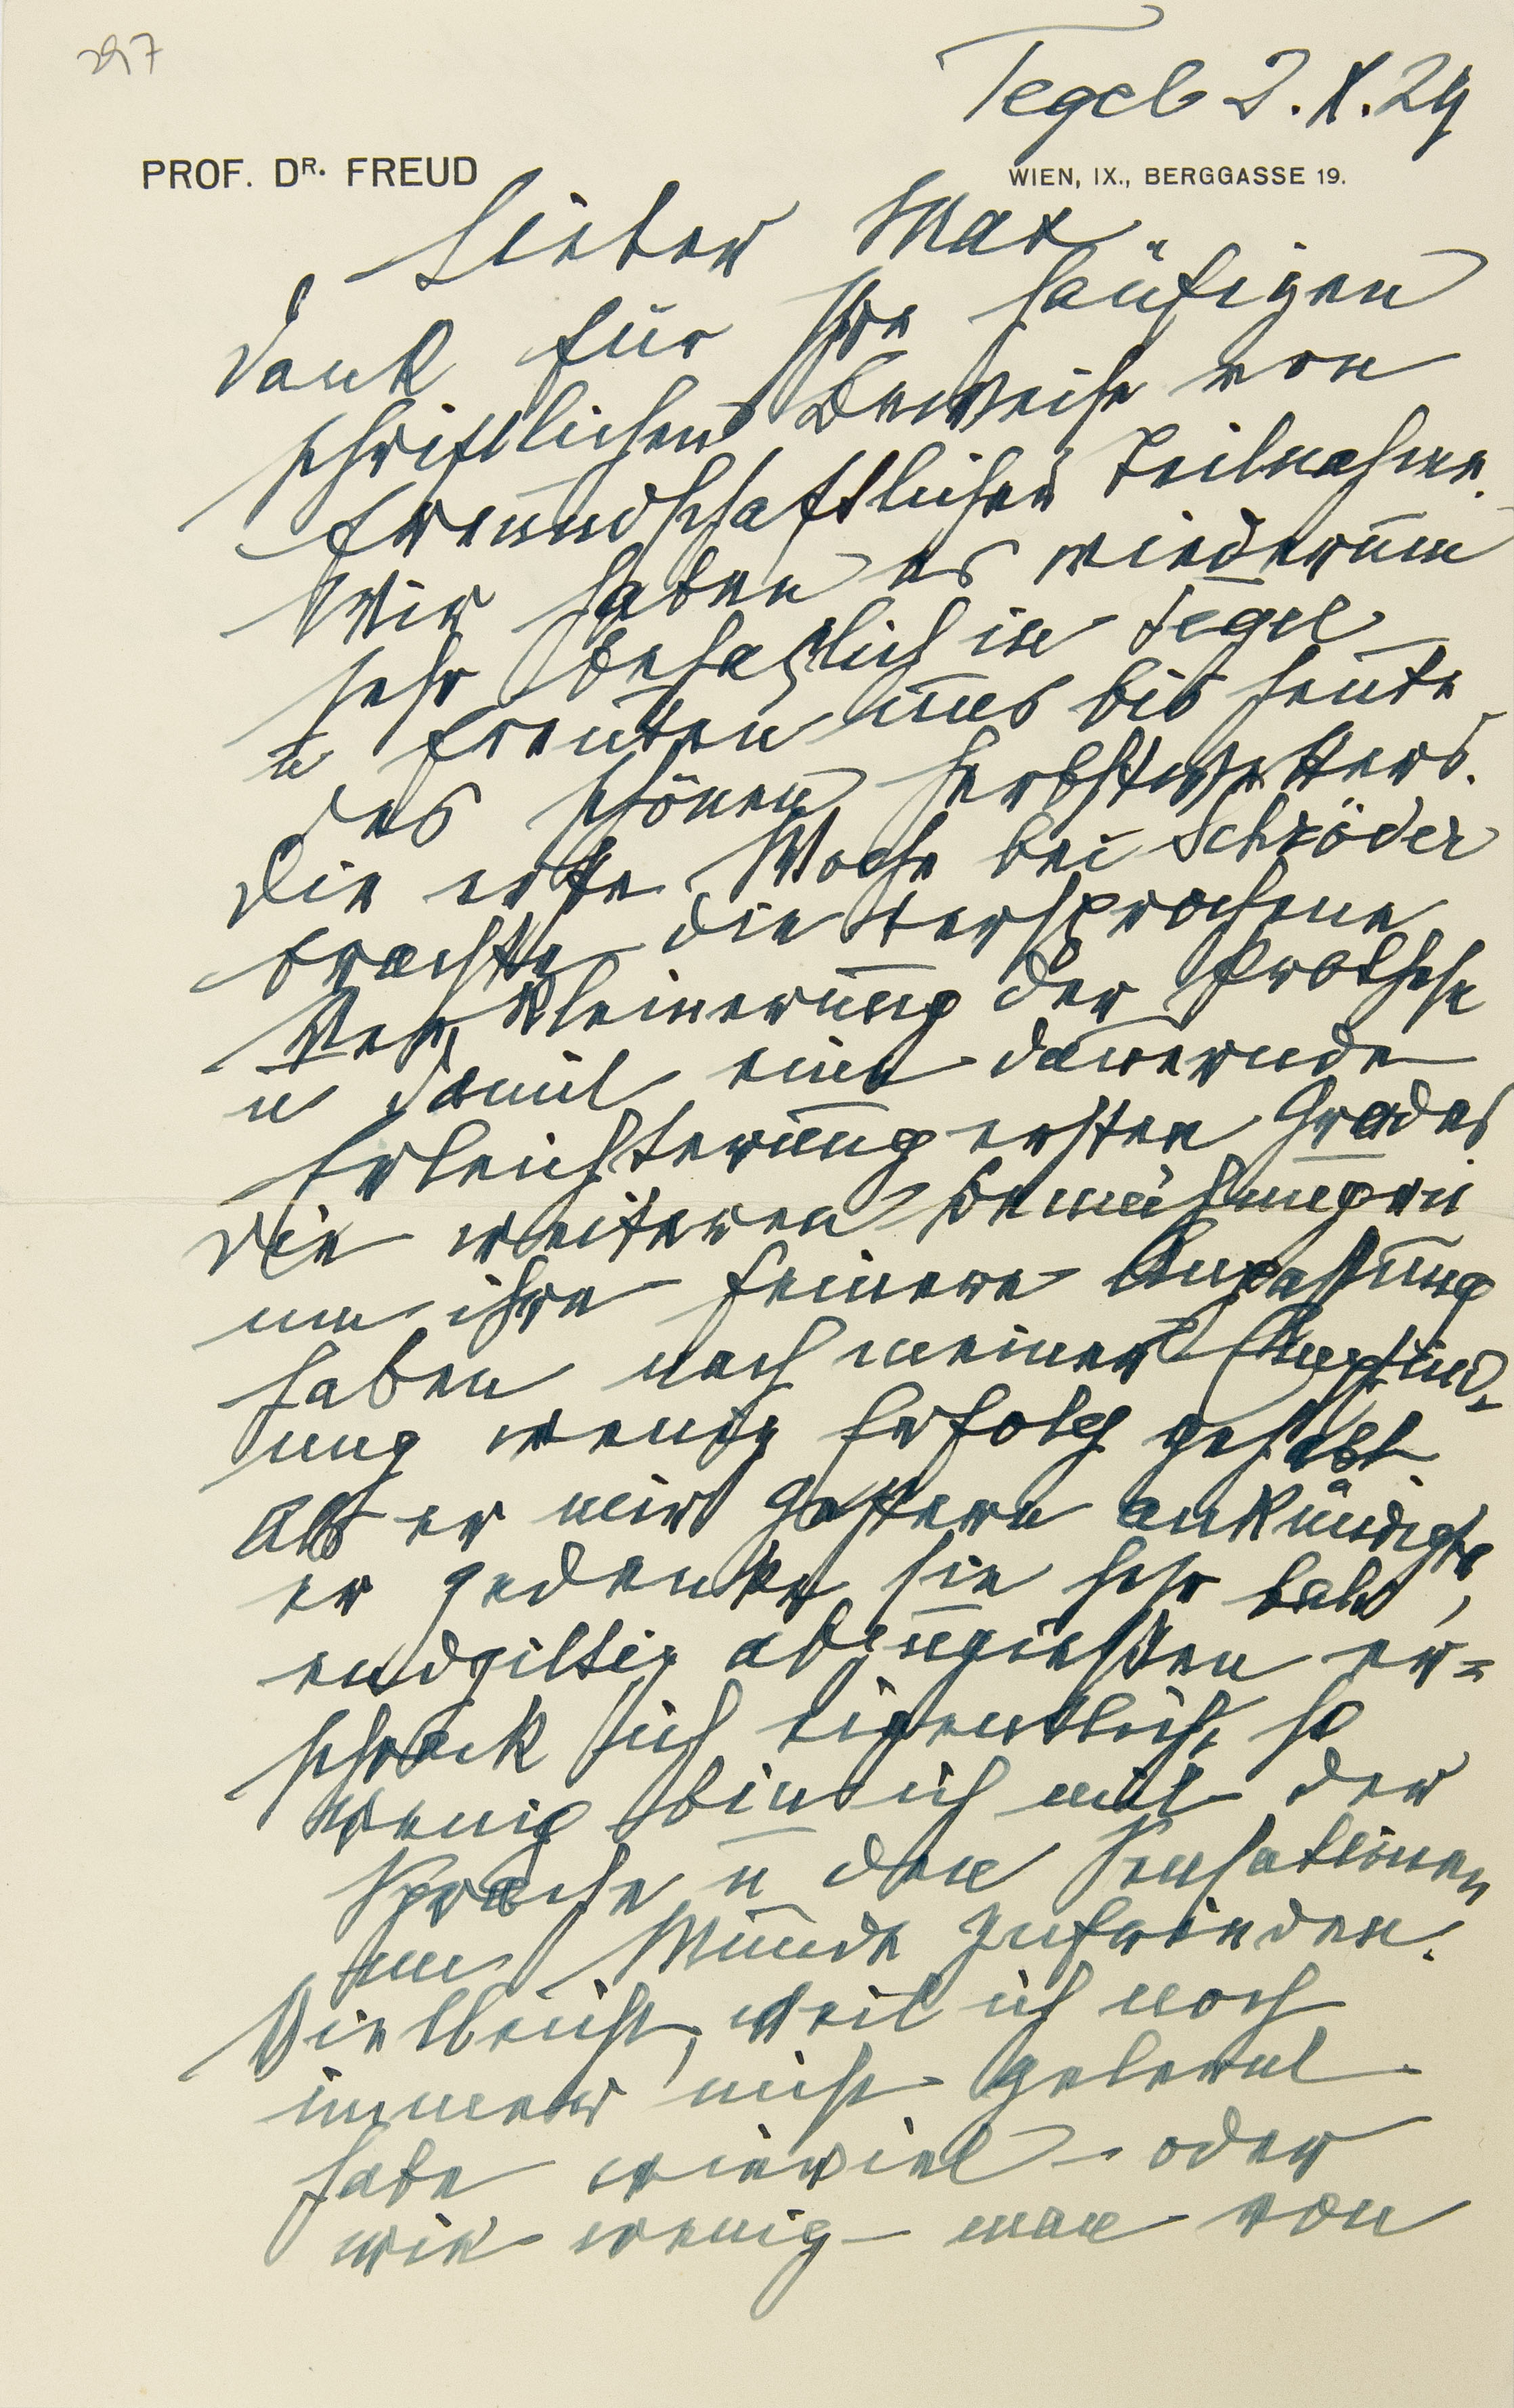 297
Tegel 2.X.29
PROF. DR. FREUD
WIEN, IX., BERGGASSE 19.
Lieber Max
Dank für Ihre häufigen
schriftlichen Beweise von
freundschaftlicher Teilnahme.
Wir haben es wiederum
sehr behaglich in Tegel
u freuten uns bis heute
des schönen Herbstwetters.
Die erste Woche bei Schröder
brachte die versprochene
Verkleinerung der Prothese
u damit eine dauernde
Erleichterung ersten Grades.
Die weiteren Bemühungen
um ihre feinere Anpassung
haben nach meiner Empfind-
ung wenig Erfolg gehabt
Als er mir gestern ankündigte,
er gedenke sie sehr bald
endgiltig abzugießen er=
schrak ich eigentlich, so
wenig bin ich mit der
Sprache u den Sensationen
im Munde zufrieden.
Vielleicht, weil ich noch
immer nicht gelernt
habe wieviel – oder
wie wenig – man von